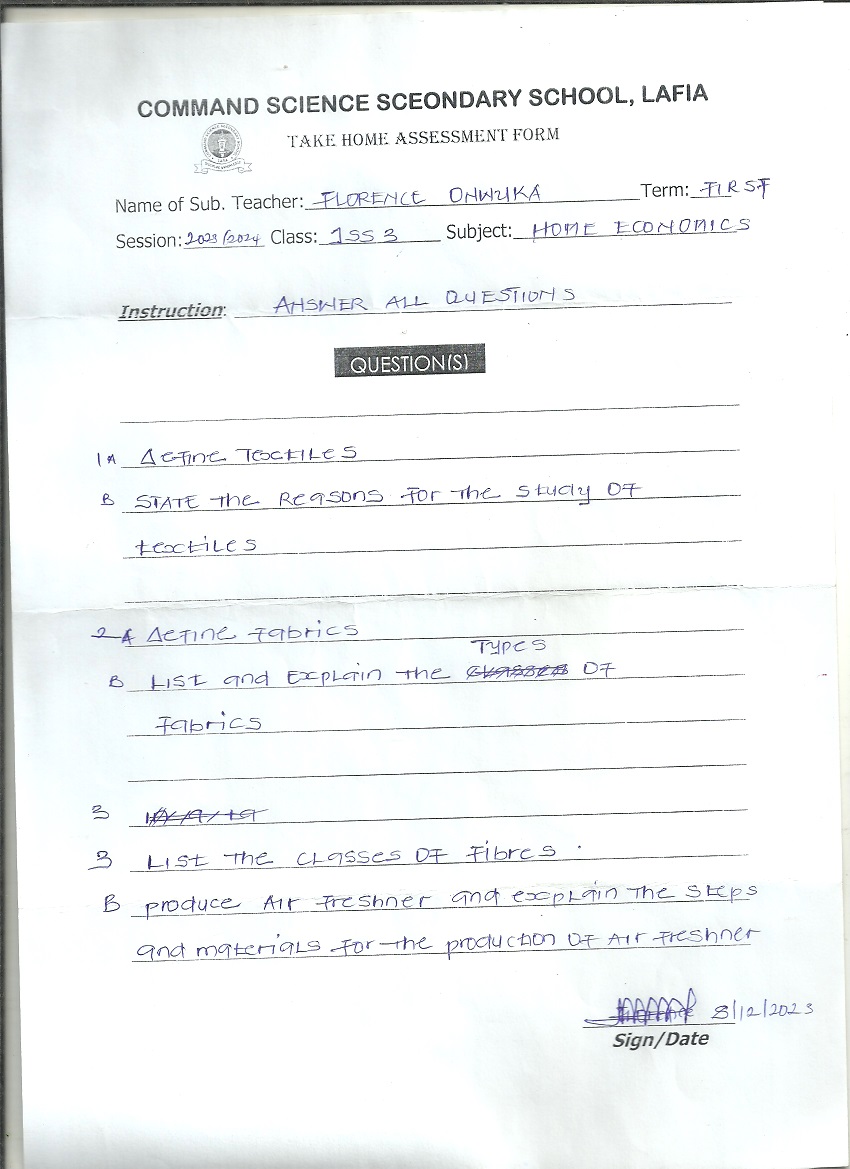 COMMAND SCIENCE SCEONDARY SCHOOL, LAFIA
TAKE HOME ASSESSMENT FORM
Name of Sub. Teacher: FLORENCE ONWUKA Term: FIRST
Session: 2023/2024 Class: JSS 3 Subject: HOME ECONOMICS
Instruction: ANSWER ALL QUESTIONS
QUESTION(S)
1A Define Textiles
B STATE the Reasons for the study of
textiles
2A Define Fabrics
TYPES
B LIST and Explain the CLASSES OF
Fabrics
3
3 LIST The CLASSES OF Fibres .
B produce Air Freshner and explain the steps
and materials for the production of Air Freshner
8/12/2023
Sign/Date